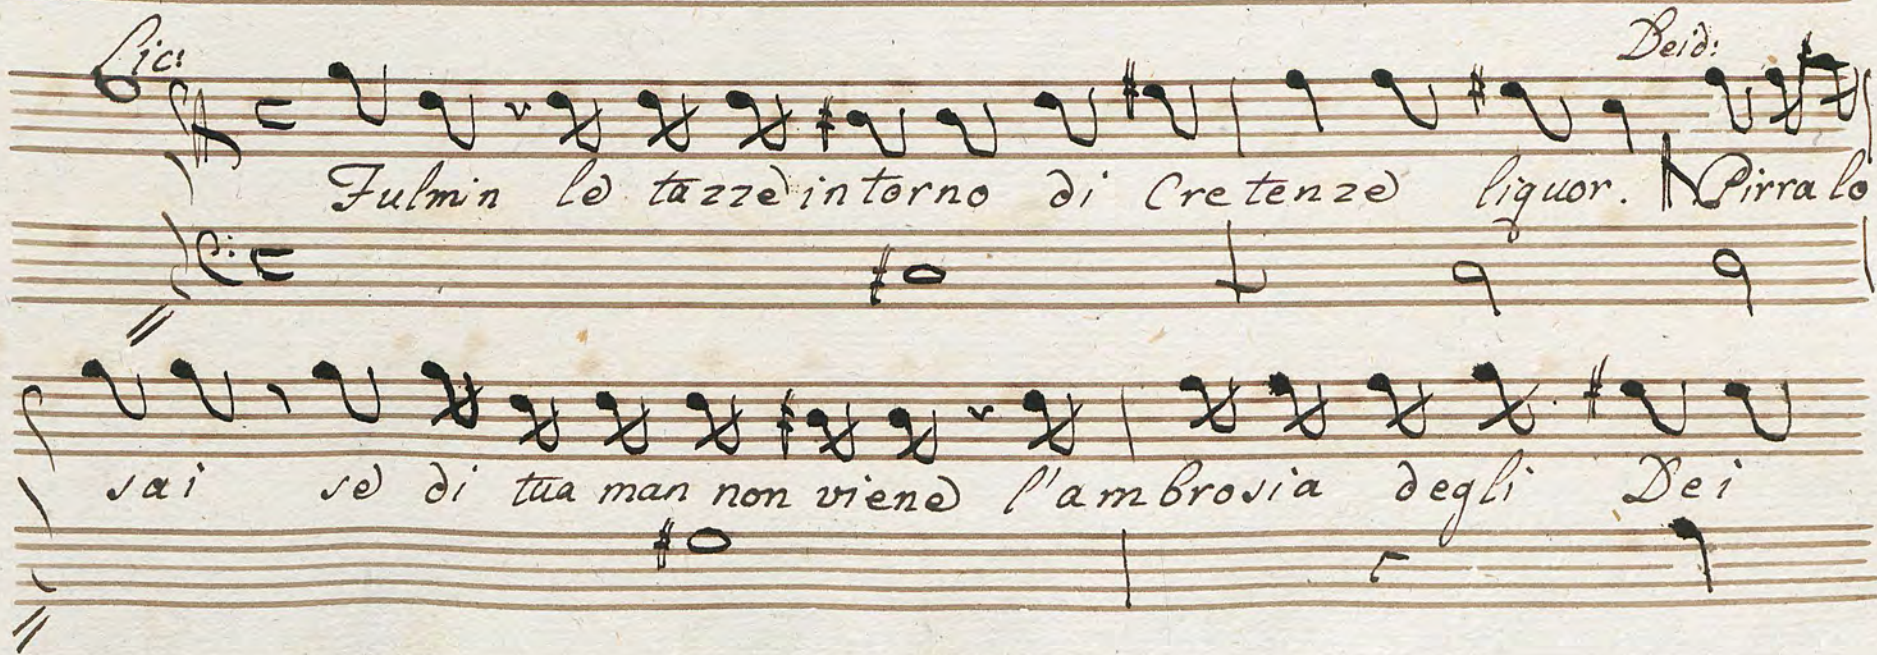 Lic: Deid:
Fulmin le tazze intorno di Cretenze liquor. Pirra lo
sai se di tua man non viene l'ambrosia degli Dei